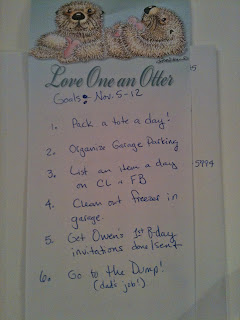 Love One an Otter
Goals: Nov. 5-12
1. Pack a tote a day!
2. Organize Garage Parking
3. List an item a day
on CL + FB
4. Clean out freezer in
garage.
5. Get Owen's 1st B-day
invitations done/sent
6. Go to the Dump!
(dad's job!)
5974